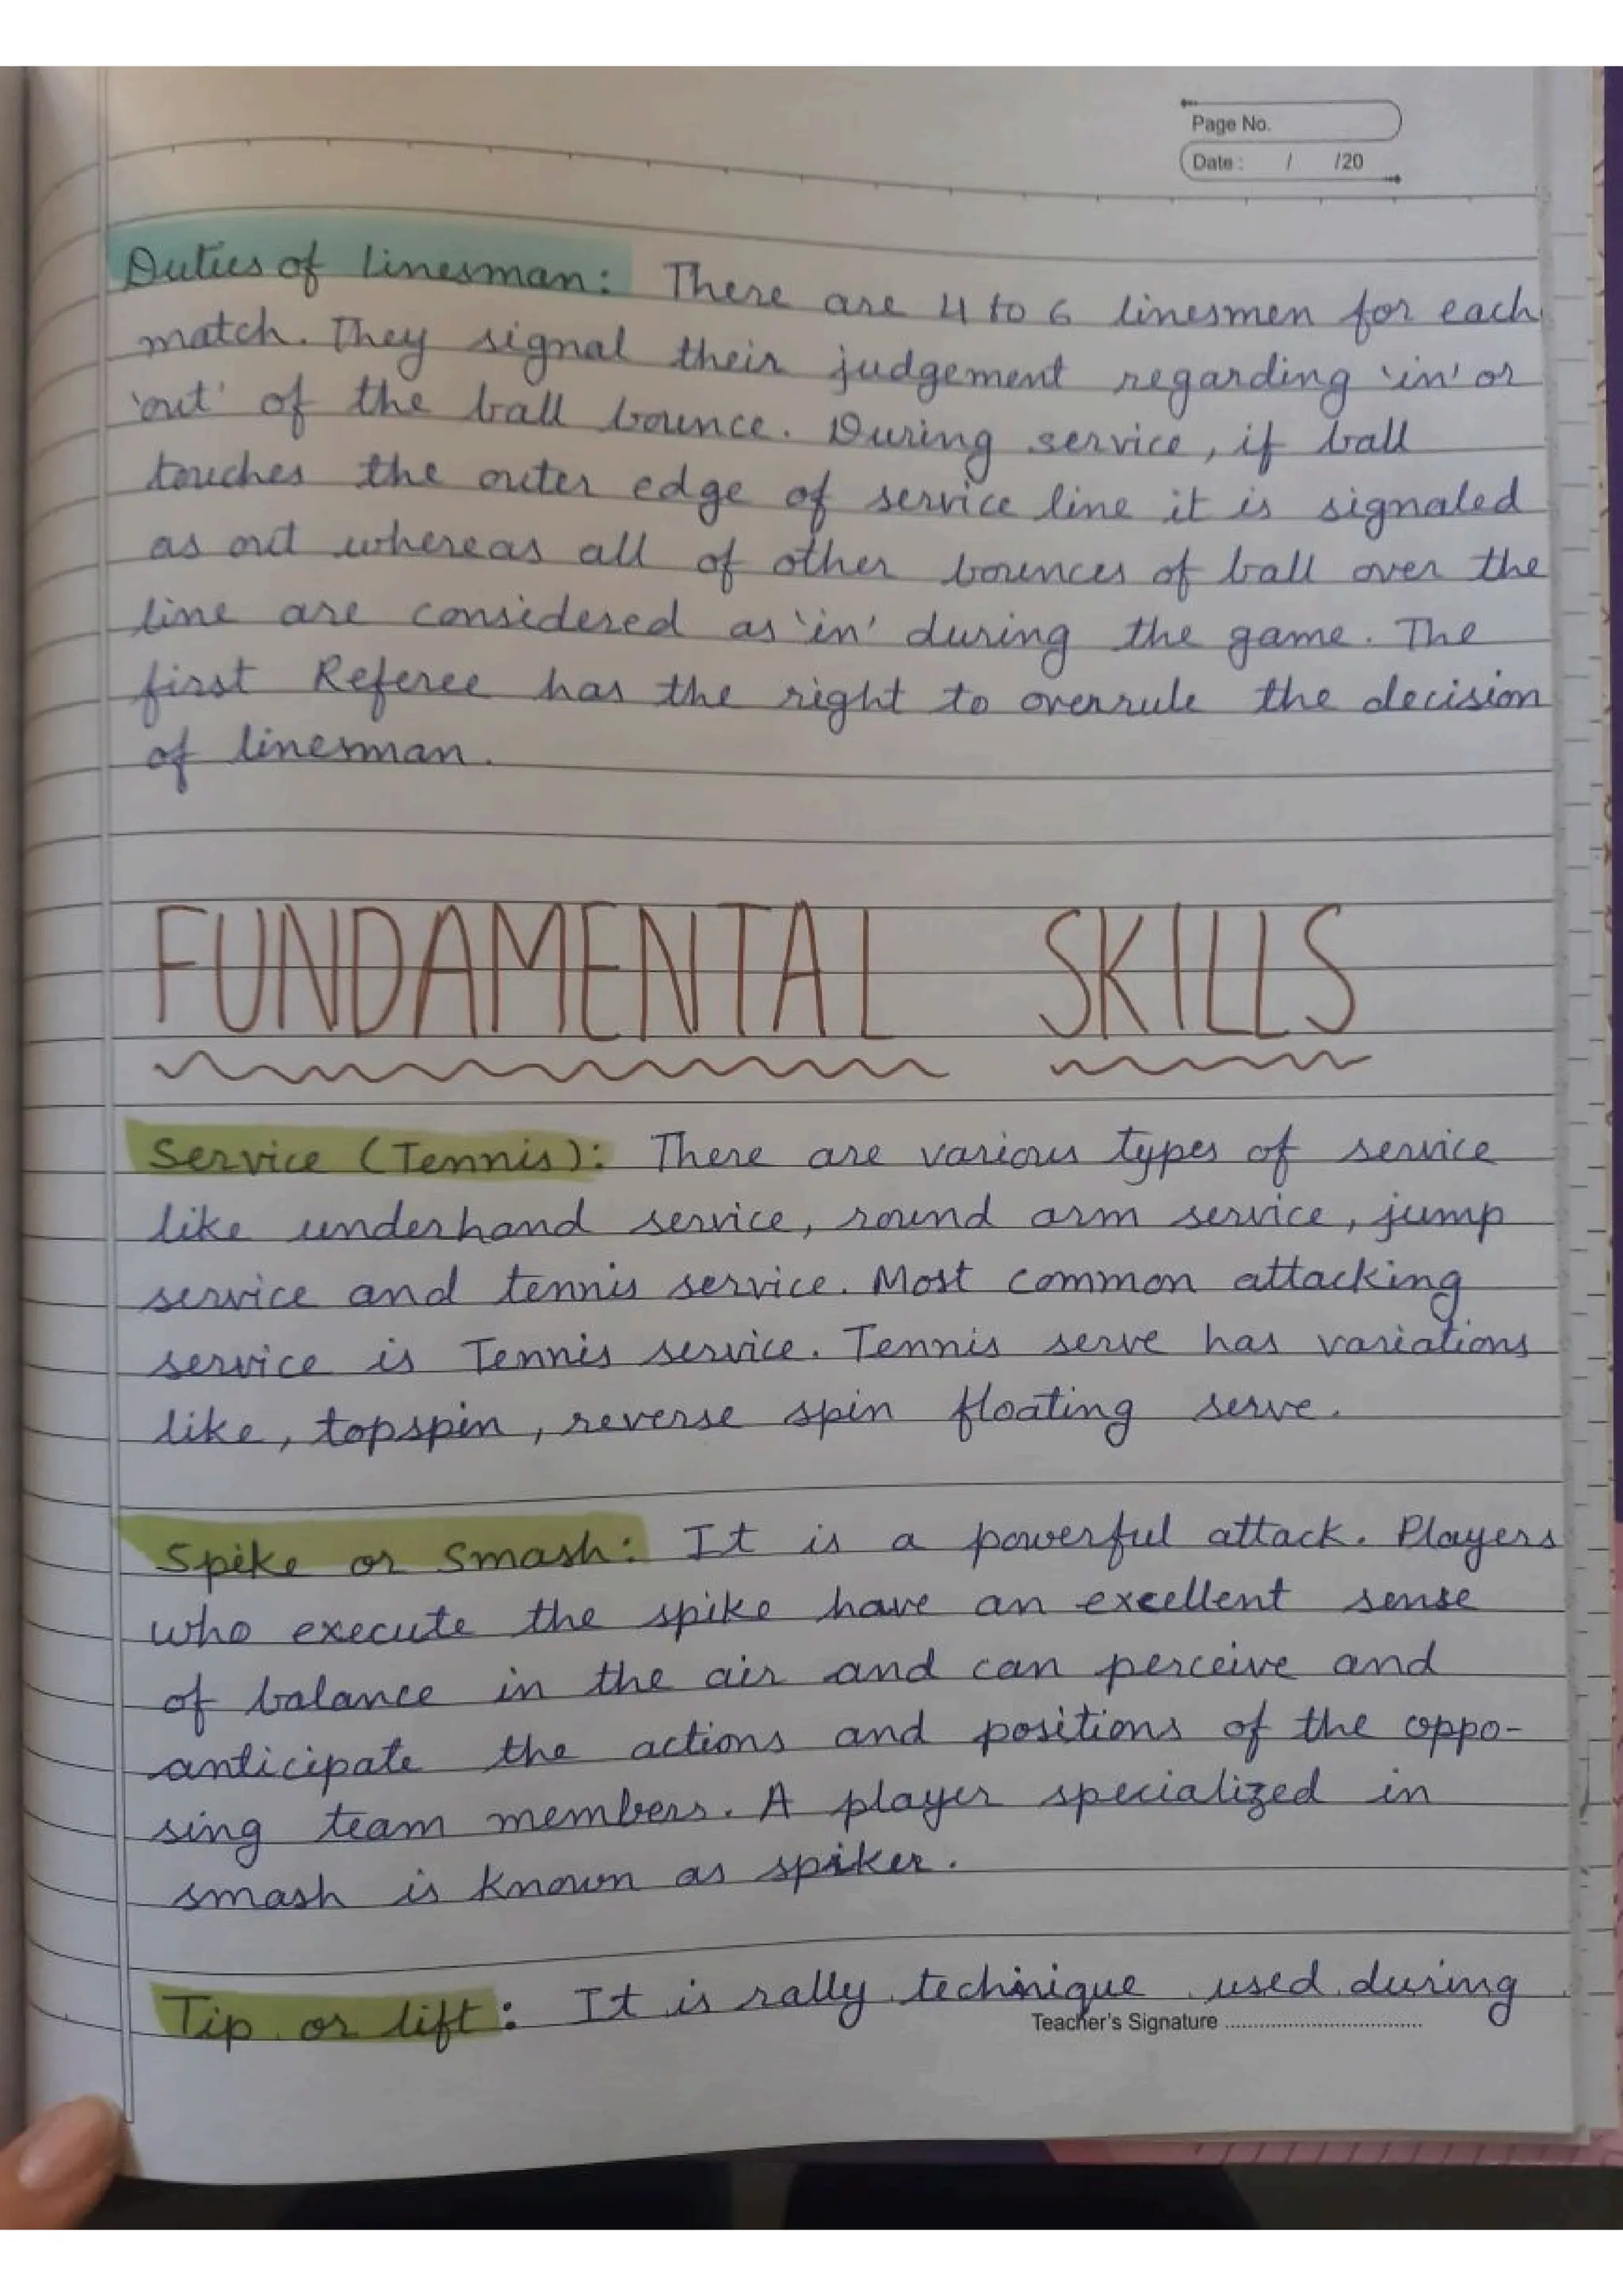 Page No.
Date : / /20
Duties of linesman: There are 4 to 6 linesmen for each
match. They signal their judgement regarding 'in' or
'out' of the ball bounce. During service, if ball
touches the outer edge of service line it is signaled
as out whereas all of other bounces of ball over the
line are considered as 'in' during the game. The
first Referee has the right to overrule the decision
of linesman.
FUNDAMENTAL SKILLS
Service (Tennis): There are various types of service
like underhand service, round arm service, jump
service and tennis service. Most common attacking
service is Tennis service. Tennis serve has variations
like, topspin, reverse spin floating serve.
Spike or Smash: It is a powerful attack. Players
who execute the spike have an excellent sense
of balance in the air and can perceive and
anticipate the actions and positions of the oppo-
sing team members. A player specialized in
smash is known as spiker.
Tip or lift: It is rally technique used during
Teacher's Signature ....................................